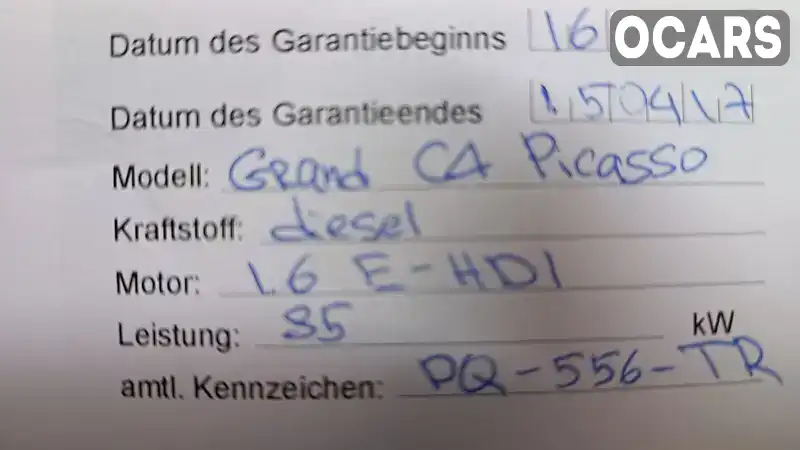 Datum des Garantiebeginns 16 OCARS
Datum des Garantieendes 150417
Modell: Grand C4 Picasso
Kraftstoff: diesel
Motor: 1.6 E-HDI
Leistung: 85 kW
amtl. Kennzeichen: DQ-556-TR